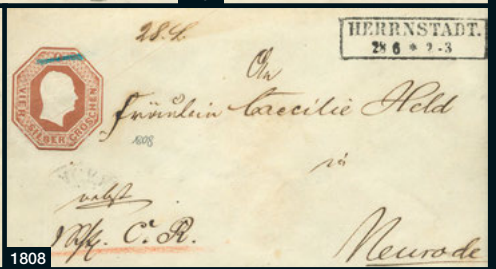 28.4.
HERRNSTADT.
28 6 * 2-3
An
VIER SILBER GROSCHEN
Fräulein Caecilie Held
1808
zu
nebst
C. R.
Neurode
1808